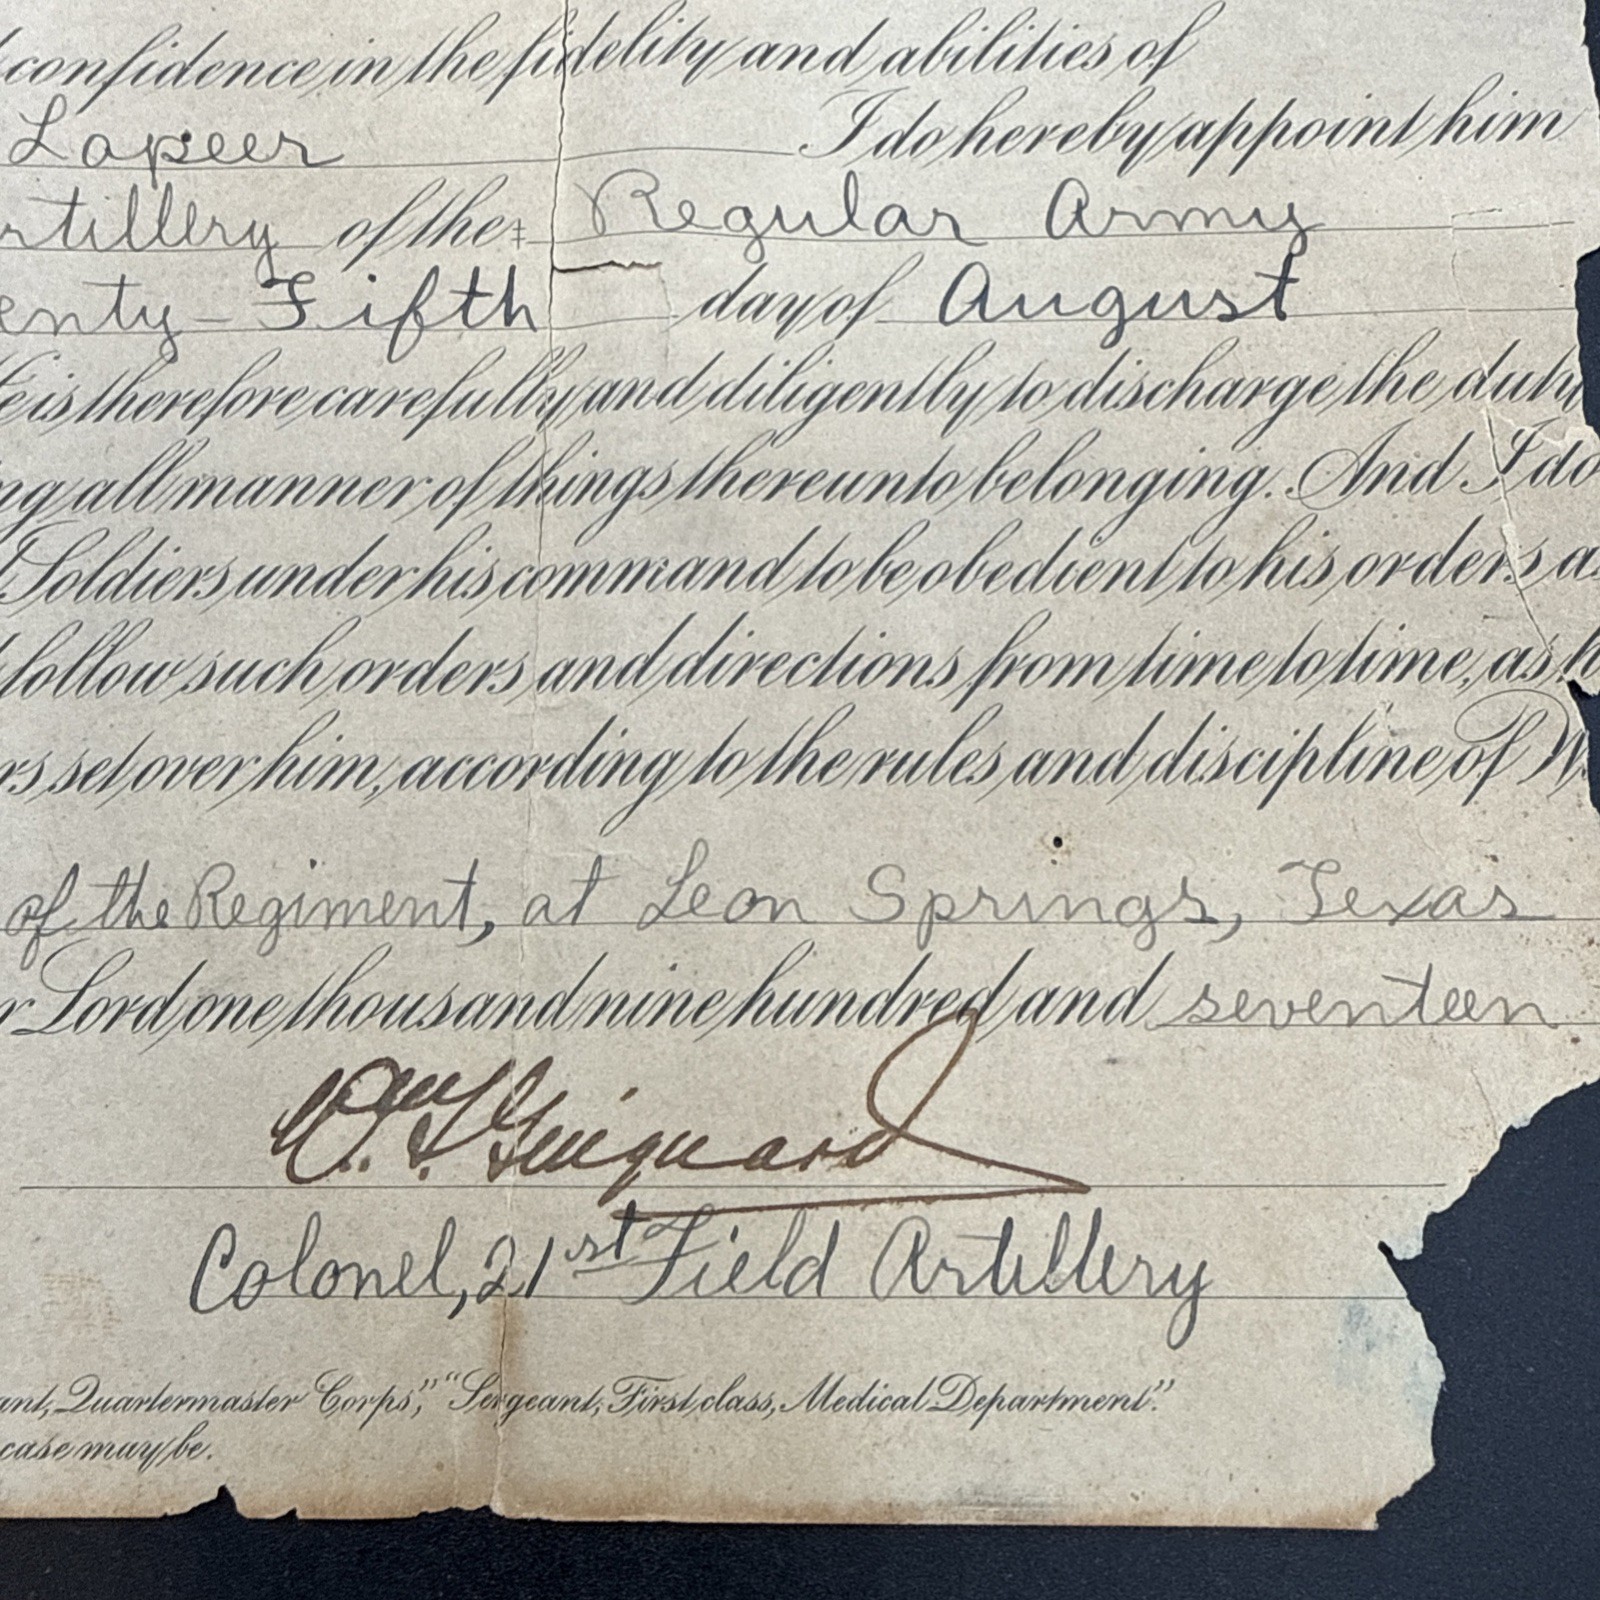 confidence in the fidelity and abilities of
Lapeer I do hereby appoint him
rtillery of the‡ Regular Army
enty-Fifth day of August
He is therefore carefully and diligently to discharge the duty
ng all manner of things thereunto belonging. And I do
Soldiers under his command to be obedient to his orders as
follow such orders and directions from time to time, as h
rs set over him, according to the rules and discipline of W
of the Regiment, at Leon Springs, Texas
r Lord one thousand nine hundred and seventeen
Colonel, 21st Field Artillery
ant, Quartermaster Corps," "Sergeant, First class, Medical Department."
case may be.